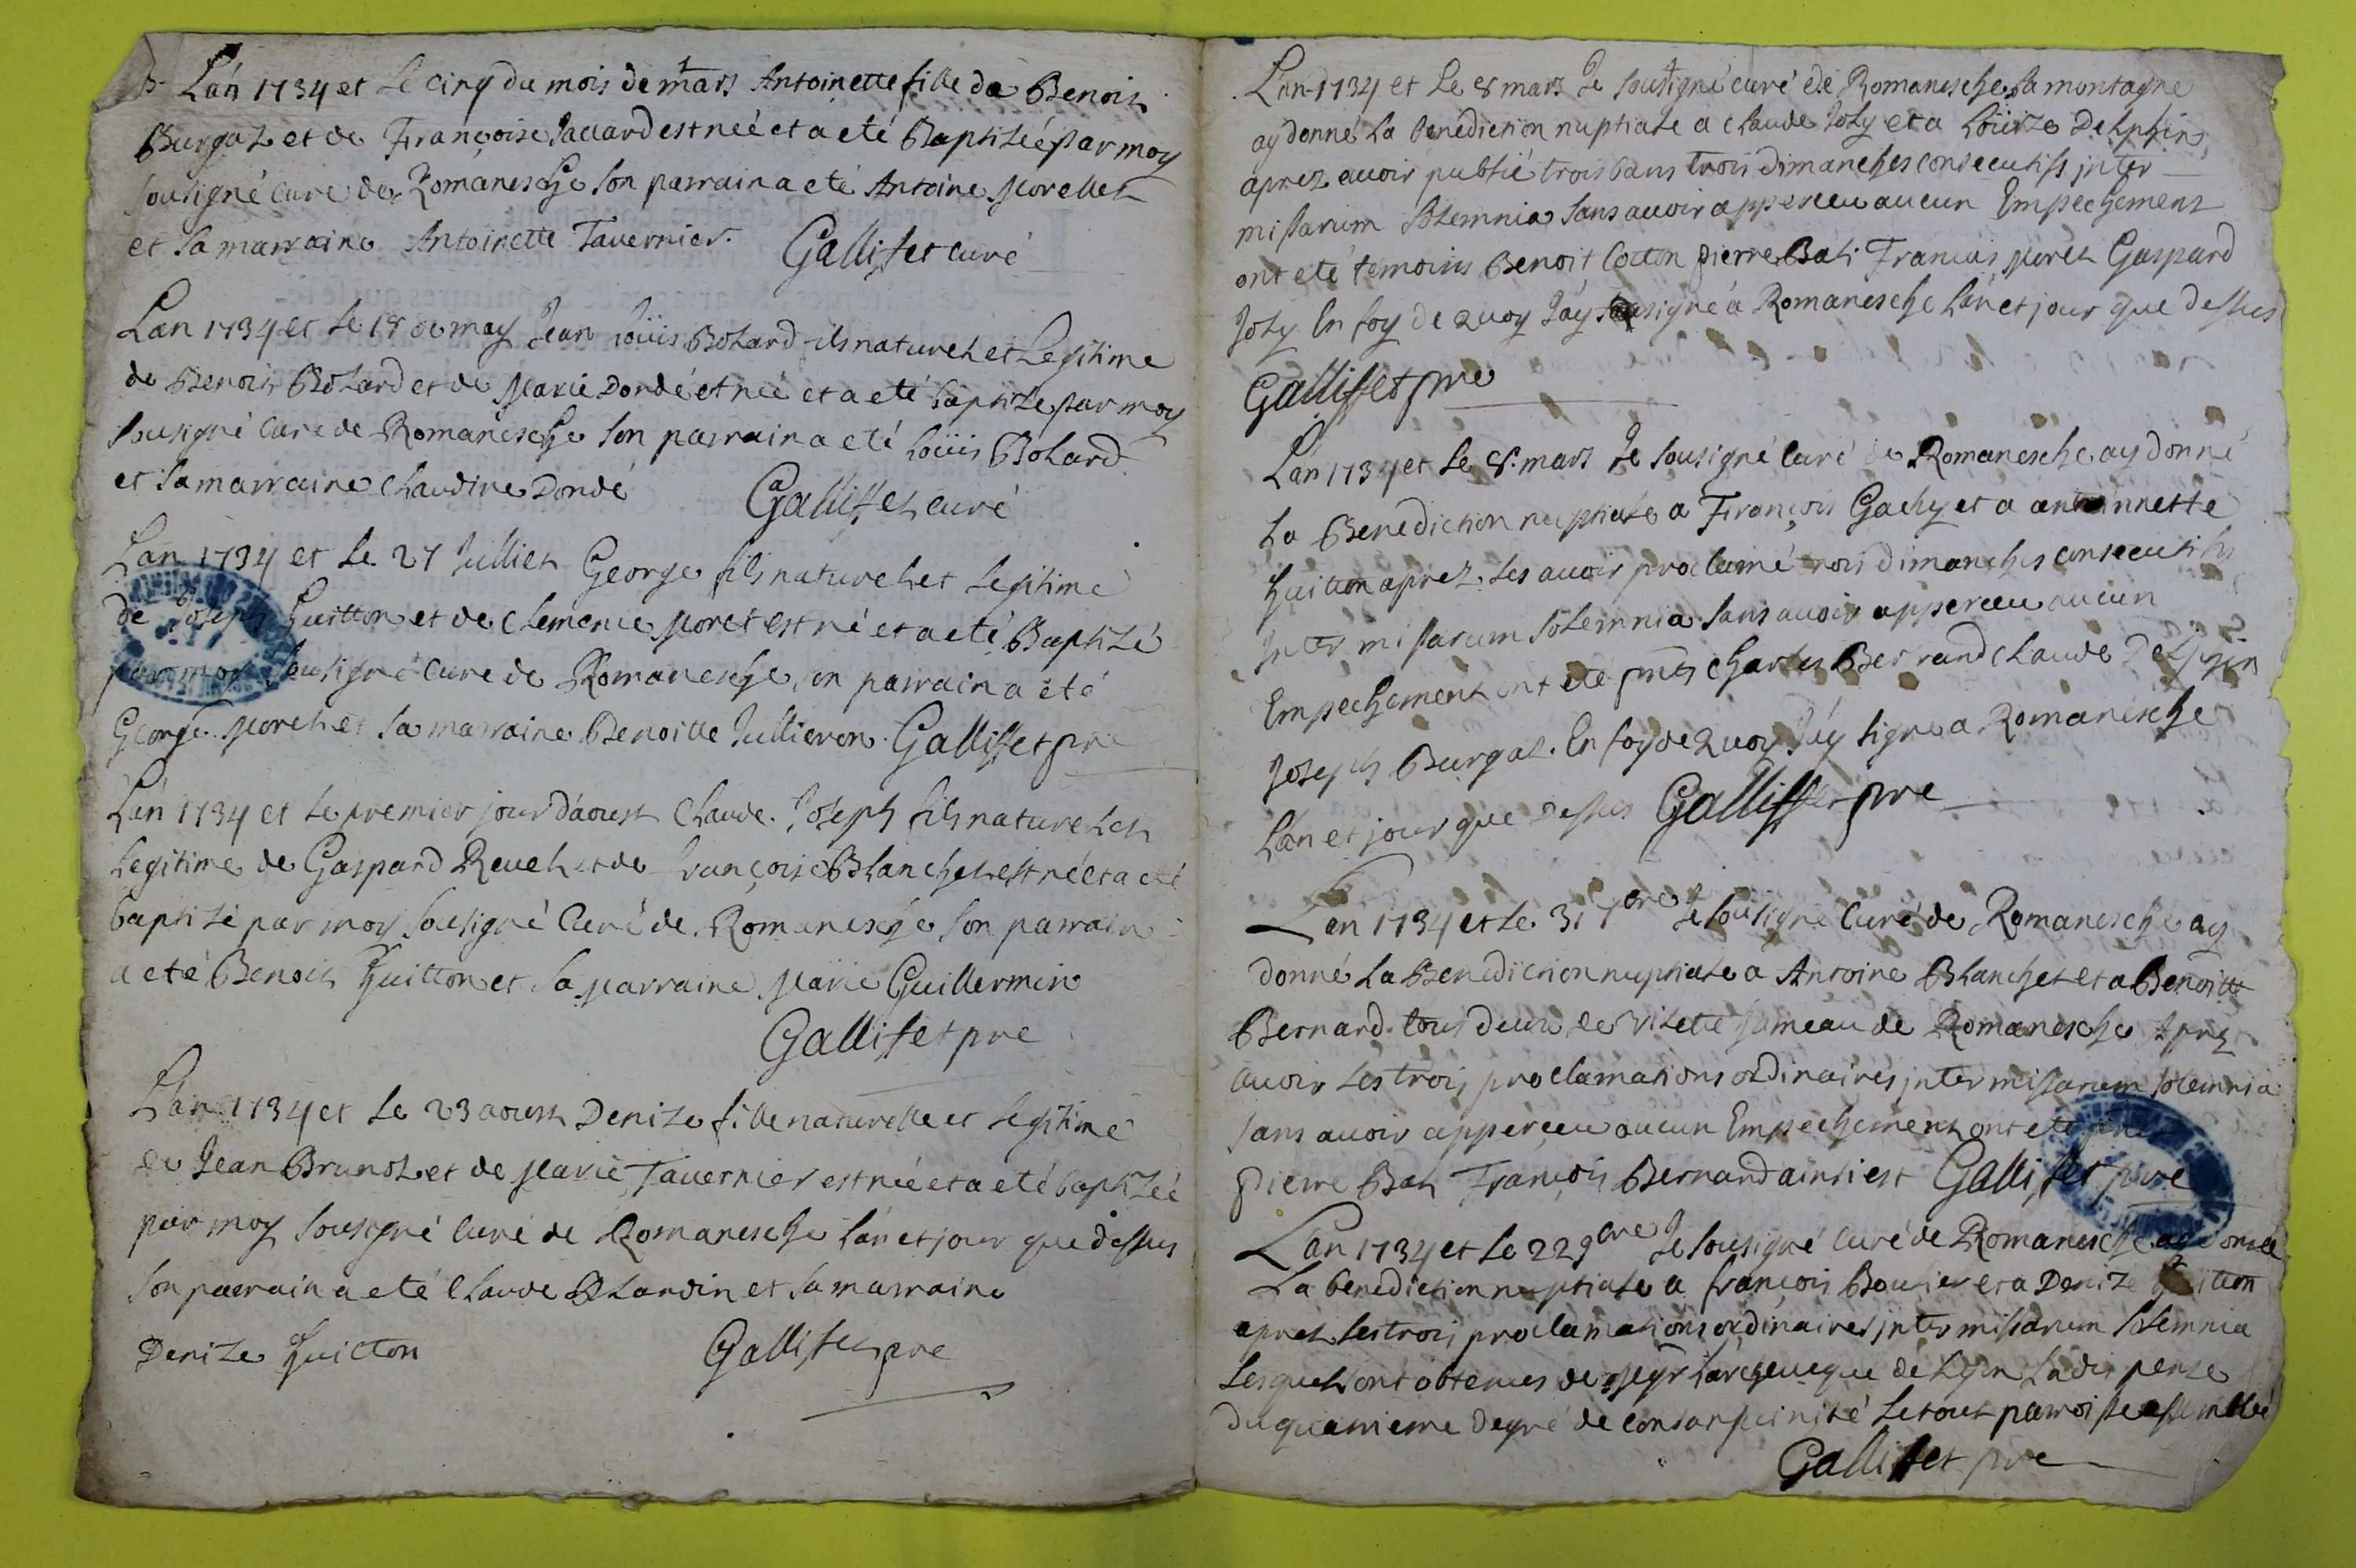 B. L'an 1734 et le cinq du mois de mars Antoinette fille de Benoit
Burgat et de Françoise Jaccard est neé et a eté Baptizeé par moy
sousigné curé de Romanesche son parrain a eté Antoine Morellet
et sa marraine Antoinette Tavernier. Galliffet curé
L'an 1734 et le 18 de may Jean loüis Bolard fils naturel et Legitime
de Benoit Bolard et de Marie Dondé et neé et a eté baptizé par moy
sousigné curé de Romanesche son parrain a eté loüis Bolard
et sa marraine claudine Dondé Galliffet curé
L'an 1734 et le 27 Juillet George fils naturel et legitime
de Joseph Guitton et de clemence Moret est né et a eté Baptizé
par moy sousigné curé de Romanesche son parrain a eté
George Morel et sa marraine Benoitte Jullieron. Galliffet pre
L'an 1734 et le premier jour d'aoust Claude Joseph fils naturel et
legitime de Gaspard Revel et de françoise Blanchet est né et a eté
baptizé par moy sousigné Curé de Romanesche son parrain
a eté Benoit Guitton et sa Marraine Marie Guillermin
Galliffet pre
L'an 1734 et le 23 aoust Denize fille naturelle et legitime
de Jean Brunet et de Marie Tavernier est neé et a eté baptizeé
par moy sousigné curé de Romanesche l'an et jour que dessus
son parrain a eté Claude Blandin et sa marraine
Denize Guitton Galliffet pre
L'an 1734 et le 8 mars Je sousigné curé de Romanesche la montagne
ay donné la benediction nuptiale a claude Joly et a Loüize Delphin
aprez avoir publié trois bans trois dimanches consecutifs inter
missarum solemnia sans avoir apperceu aucun Empechement
ont eté temoins Benoit Cotton pierre Bali Francois Morel Gaspard
Joly En foy de quoy J'ay sousigné a Romanesche l'an et jour que dessus
Galliffet pre
L'an 1734 et le 8. mars Je sousigné Curé de Romanesche ay donné
la Benediction nuptiale a François Gachy et a antoinnette
Guitton aprez les avoir proclamé trois dimanches consecutifs
Inter missarum solemnia sans avoir apperceu aucun
Empechement ont eté pnts charles Berrand claude Delphin
Joseph Burgat. En foy de quoy J'ay signé a Romanesche
L'an et jour que dessus Galliffet pre
L'an 1734 et le 31 7bre Je sousigné Curé de Romanesche ay
donné la Benediction nuptiale a Antoine Blanchet et a Benoitte
Bernard tous deux de Vilette hameau de Romanesche aprez
avoir les trois proclamations ordinaires inter missarum solemnia
sans avoir apperceu aucun Empechement ont eté pnts
pierre Bali François Bernard ainsi est Galliffet pre
L'an 1734 et le 22 9bre Je sousigné Curé de Romanesche ay donné
La benediction nuptiale a françois Bouvier et a Denize Guitton
aprez les trois proclamations ordinaires inter missarum solemnia
Lesquels ont obtenus de Mgr l'archeveque de Lyon la dispense
du quatrieme degré de consanguinité le tout parroisse assemblé
Galliffet pre